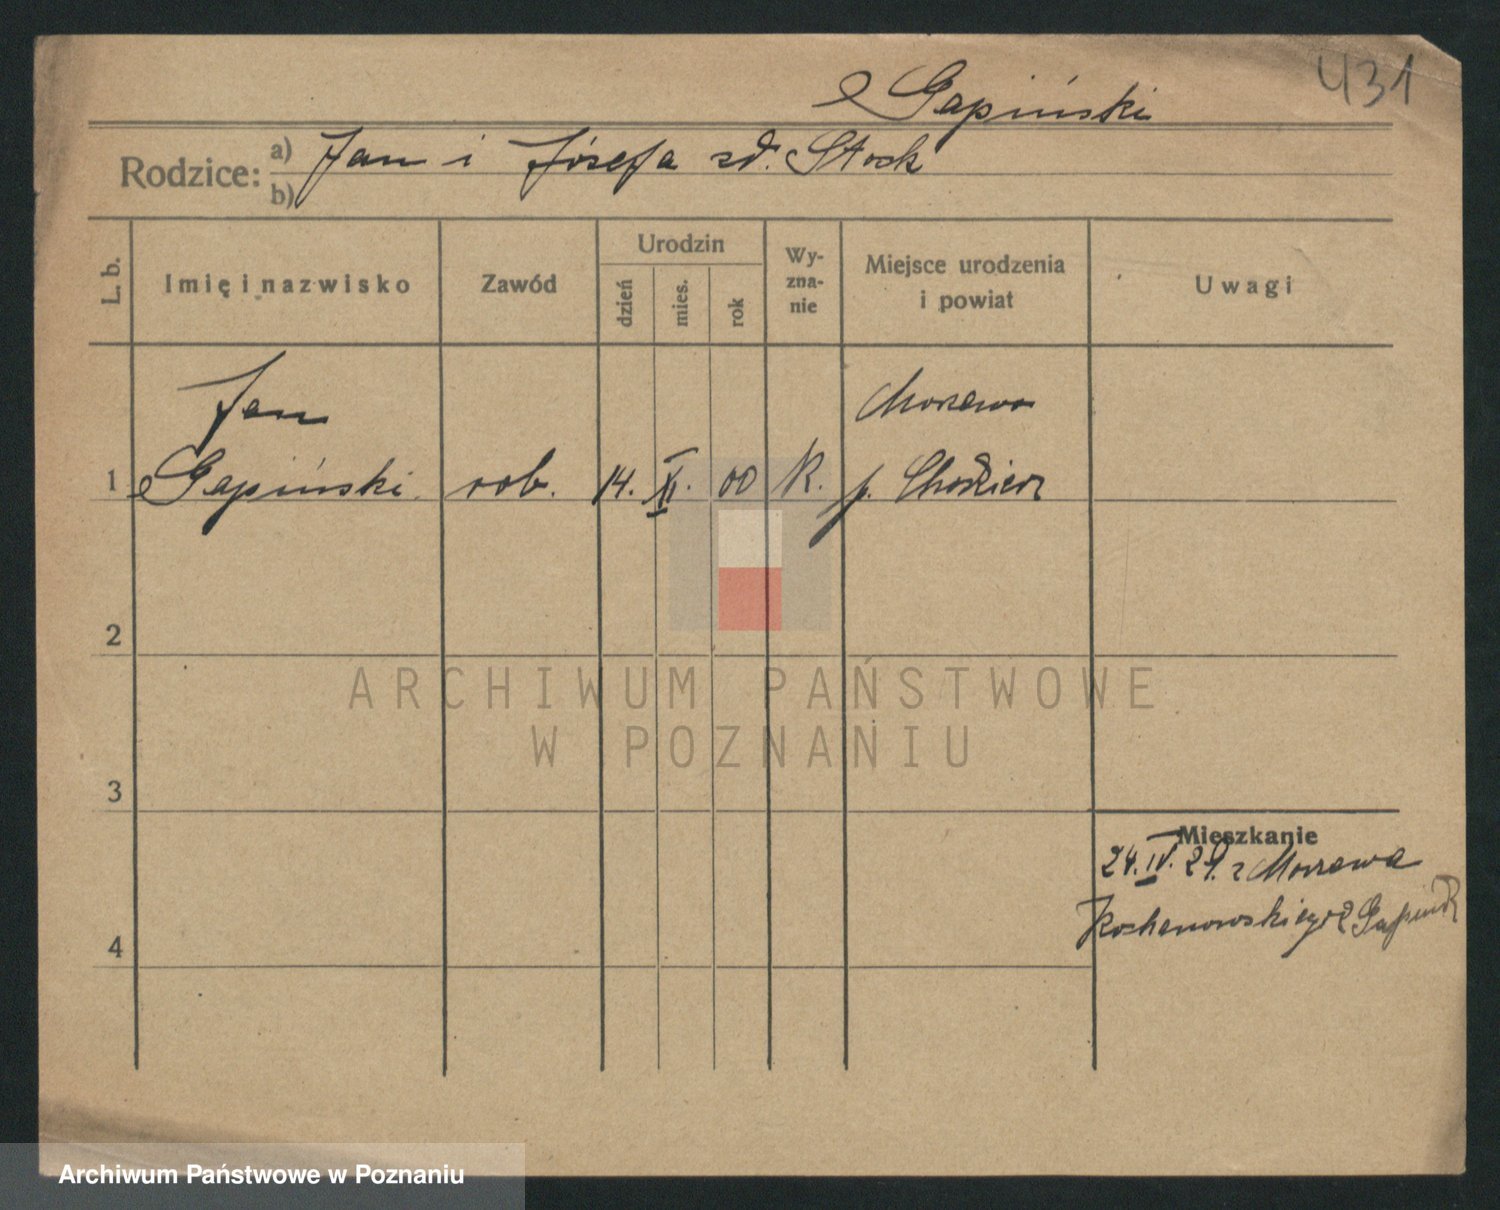 431
Gapiński
Rodzice: a) Jan i Józefa zd. Stock
b)
L. b. Imię i nazwisko Zawód Urodzin dzień mies. rok Wy-zna-nie Miejsce urodzenia i powiat Uwagi
Jan Morzewo
1 Gapiński rob. 14. XI. 00 R. p. Chodzież
2
ARCHIWUM PAŃSTWOWE
W POZNANIU
3
Mieszkanie
24. IV. 29. z Morzewa
4 Kochanowskiego 2
Archiwum Państwowe w Poznaniu